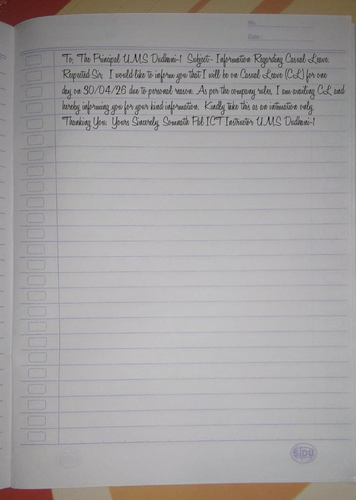 No.
Date:
To, The Principal U.M.S Dudhani-1 Subject:- Information Regarding Casual Leave.
Respected Sir, I would like to inform you that I will be on Casual Leave (CL) for one
day on 30/04/26 due to personal reason. As per the company rules, I am availing CL and
hereby informing you for your kind information. Kindly take this as an intimation only.
Thanking You. Yours Sincerely, Somnath Pal ICT Instructor U.M.S Dudhani-1